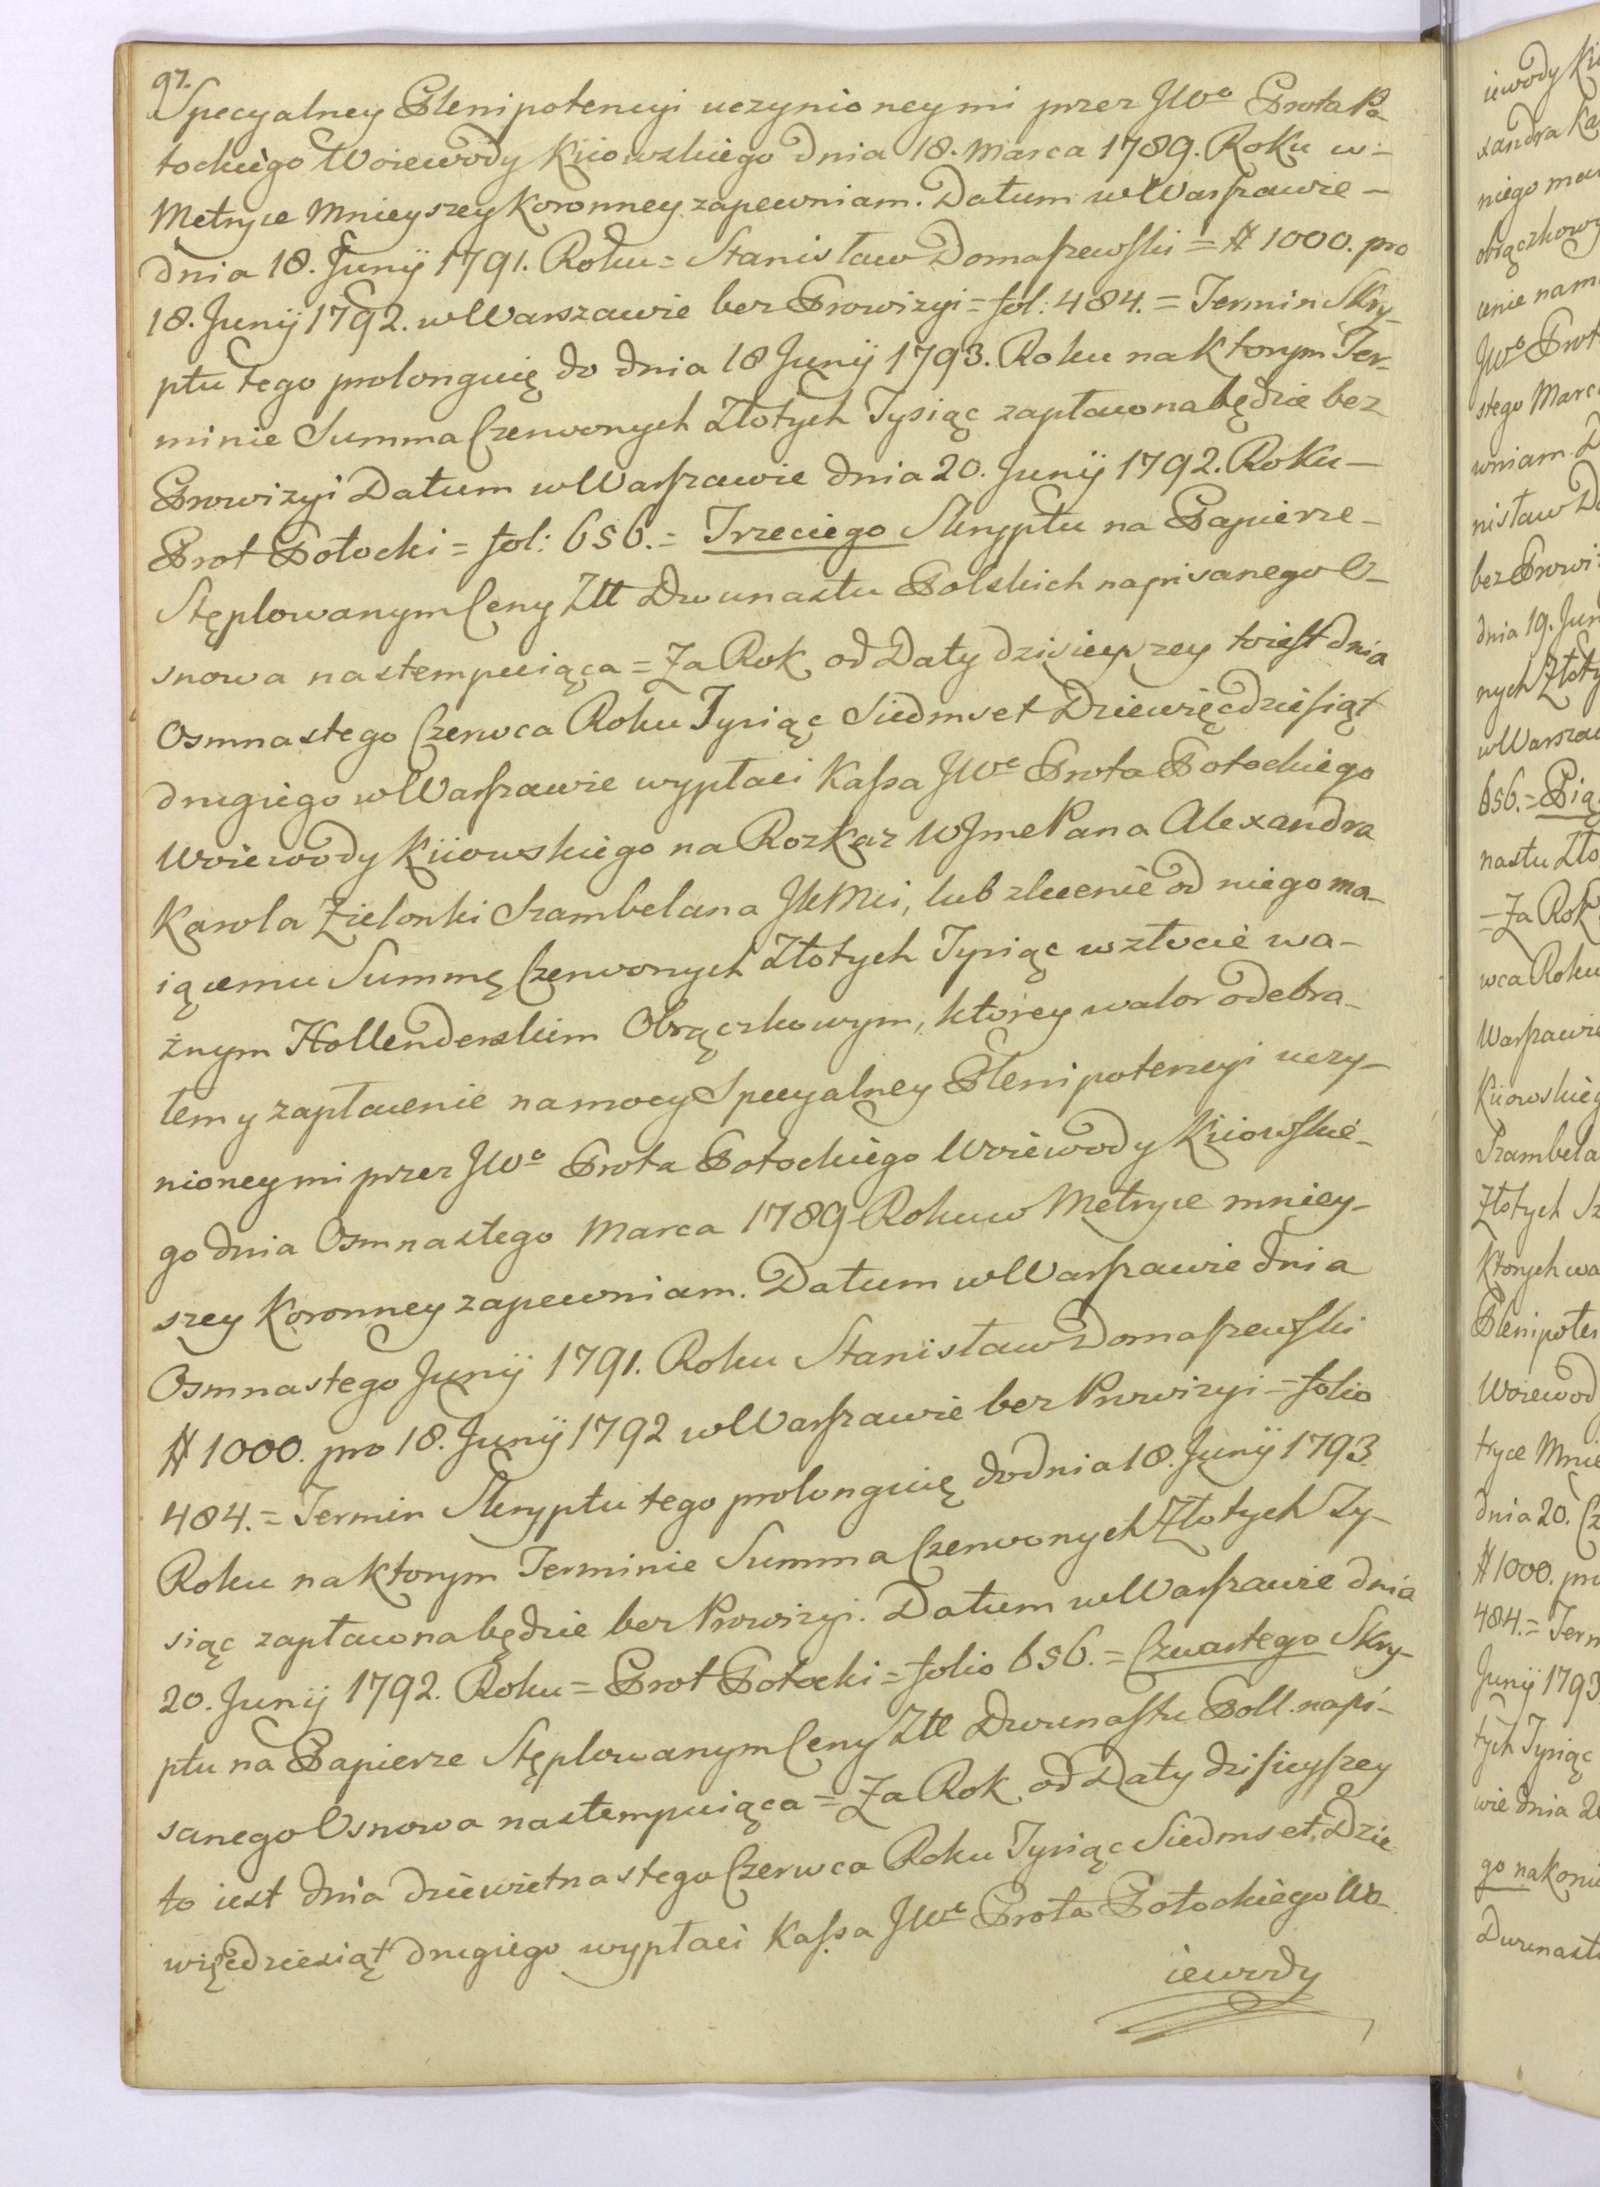 97.
Specyalney Plenipotencyi uczynioney mi przez JWo Prota Po-
tockiego Woiewody Kiiowskiego dnia 18. Marca 1789. Roku w-
Metryce Mnieyszey Koronney zapewniam. Datum w Warszawie -
dnia 18. Junij 1791. Roku = Stanisław Domaszewski = # 1000. pro
18. Junij 1792. w Warszawie bez Prowizyi = fol: 484. = Termin Skry-
ptu tego prolonguię do dnia 18 Junij 1793. Roku na ktorym Ter-
minie Summa Czerwonych Złotych Tysiąc zapłacona będzie bez
Prowizyi Datum w Warszawie dnia 20. Junij 1792. Roku -
Prot Potocki = fol: 656. = Trzeciego Skryptu na Papierze -
Stęplowanym Ceny Złł Dwunastu Polskich napisanego O-
snowa nastempuiąca = Za Rok od Daty dzisieyszey to iest dnia
Osmnastego Czerwca Roku Tysiąc Siedmset Dziewięcdziesiąt
drugiego w Warszawie wypłaci Kassa JWo Prota Potockiego
Woiewody Kiiowskiego na Rozkaz WJme Pana Alexandra
Karola Zielonki Szambelana JKMci, lub zlecenie od niego ma-
iącemu Summę Czerwonych Złotych Tysiąc w złocie wa-
żnym Hollenderskim Obrączkowym, ktorey walor odebra-
łem y zapłacenie na mocy Specyalney Plenipotencyi uczy-
nioney mi przez JWo Prota Potockiego Woiewody Kiiowskie-
go dnia Osmnastego Marca 1789 Roku w Metryce mniey-
szey Koronney zapewniam. Datum w Warszawie dnia
Osmnastego Junij 1791. Roku Stanisław Domaszewski
# 1000. pro 18. Junij 1792 w Warszawie bez Prowizyi = folio
484. = Termin Skryptu tego prolonguię do dnia 18. Junij 1793.
Roku na ktorym Terminie Summa Czerwonych Złotych Ty-
siąc zapłacona będzie bez Prowizyi. Datum w Warszawie dnia
20. Junij 1792. Roku = Prot Potocki = folio 656. = Czwartego Skry-
ptu na Papierze Stęplowanym Ceny Złł Dwunastu Poll. napi-
sanego Osnowa nastempuiąca = Za Rok od Daty dzisieyszey
to iest dnia dziewietnastego Czerwca Roku Tysiąc Siedmset Dzie-
więcdziesiąt drugiego wypłaci Kassa JWo Prota Potockiego Wo-
iewody
niego
Marc
wniam
nisław Do
dnia 19. Jun
656. =
= Za Rok
wca Roku
Kiiowskieg
Szambela
Złotych
Ktorych wa
Plenipoten
Woiewod
dnia 20. Cz
# 1000. pro
484. = Term
Junij 1793
tych Tysiąc
wie dnia 2
go na koni
Dwunastu